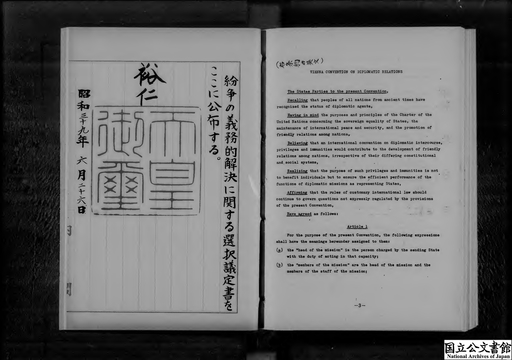 紛争の義務的解決に関する選択議定書を
ここに公布する。
裕仁
天皇御璽
昭和三十九年六月二十六日
VIENNA CONVENTION ON DIPLOMATIC RELATIONS
The States Parties to the present Convention,
Recalling that peoples of all nations from ancient times have
recognized the status of diplomatic agents,
Having in mind the purposes and principles of the Charter of the
United Nations concerning the sovereign equality of States, the
maintenance of international peace and security, and the promotion of
friendly relations among nations,
Believing that an international convention on diplomatic intercourse,
privileges and immunities would contribute to the development of friendly
relations among nations, irrespective of their differing constitutional
and social systems,
Realizing that the purpose of such privileges and immunities is not
to benefit individuals but to ensure the efficient performance of the
functions of diplomatic missions as representing States,
Affirming that the rules of customary international law should
continue to govern questions not expressly regulated by the provisions
of the present Convention,
Have agreed as follows:
Article 1
For the purpose of the present Convention, the following expressions
shall have the meanings hereunder assigned to them:
(a) the "head of the mission" is the person charged by the sending State
with the duty of acting in that capacity;
(b) the "members of the mission" are the head of the mission and the
members of the staff of the mission;
国立公文書館
National Archives of Japan